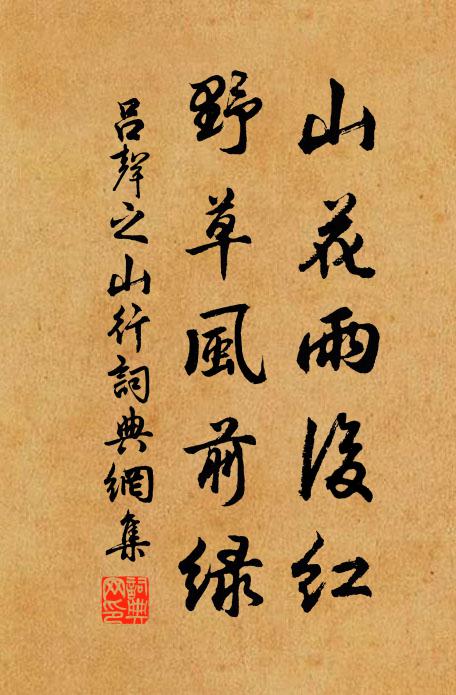 山花雨後紅
野草風前綠
吕聲之山行詞典網集
詞典
网印